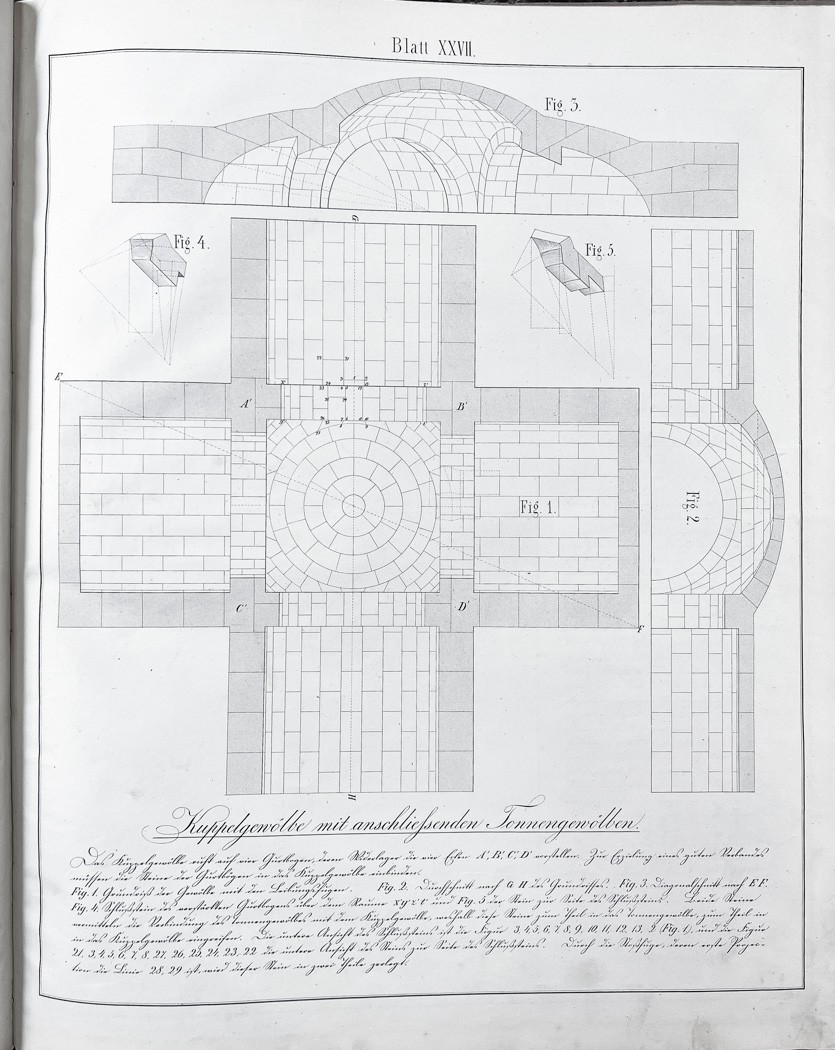 Blatt XXVII.
Fig. 3.
G
Fig. 4.
Fig. 5.
E
A'
B'
Fig. 1.
Fig. 2.
C'
D'
F
H
Kuppelgewölbe mit anschliessenden Tonnengewölben.
Das Kuppelgewölbe ruht auf vier Gurtbogen, deren Widerlager die vier Ecken A', B', C', D' vorstellen. Zur Erzielung eines guten Verbandes
müssen die Steine der Gurtbogen in das Kuppelgewölbe einbinden.
Fig. 1. Grundriss der Gewölbe mit den Fig. 2. Durchschnitt nach G H des Grundrisses. Fig. 3. Diagonalschnitt nach E F.
Fig. 4. Schlussstein des Gurtbogens über dem Raume x y z v und Fig. 5 der Stein zur Seite des Schlusssteins. Beide Steine
vermitteln die Verbindung des Tonnengewölbes mit dem Kuppelgewölbe, weshalb diese Steine zum Theil in das Tonnengewölbe, zum Theil in
in das Kuppelgewölbe eingreifen. Die untere Ansicht des Schlusssteins ist die Figur 3, 4, 5, 6, 7, 8, 9, 10, 11, 12, 13, 2 (Fig. 1), und die Figur
21, 3, 4, 5, 6, 7, 8, 27, 26, 25, 24, 23, 22 die untere Ansicht des Steins zur Seite des Schlusssteins. Durch die deren erste Projec-
tion die Linie 28, 29 ist, wird dieser Stein in zwei Theile zerlegt.